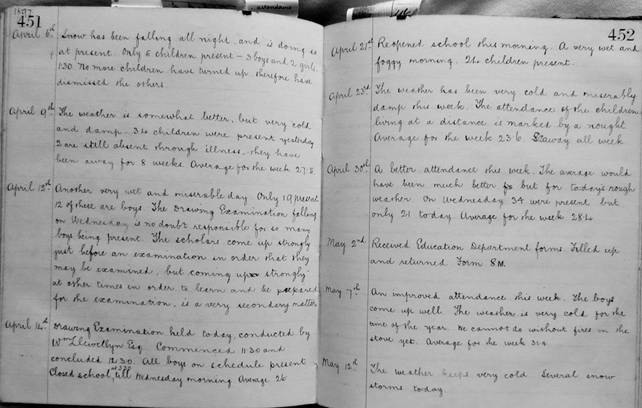 1897
451
attendance
April 6th Snow has been falling all night, and is doing so
at present. Only 5 children present – 3 boys and 2 girls.
1.30 No more children have turned up therefore have
dismissed the others.
April 9th The weather is somewhat better, but very cold
and damp. 34 children were present yesterday
2 are still absent through illness, they have
been away for 8 weeks. Average for the week 27.8
April 12th Another very wet and miserable day. Only 19 present
12 of these are boys. The Drawing Examination falling
on Wednesday is no doubt responsible for so many
boys being present. The scholars come up strongly
just before an examination in order that they
may be examined, but coming up strongly
at other times in order to learn and be prepared
for the examination, is a very secondary matter.
April 14th Drawing Examination held today, conducted by
Wm Llewellyn Esq. Commenced 11.30 and
concluded 12.30. All boys on schedule present
Closed school till Wednesday morning Average 26
452
April 21st Reopened school this morning. A very wet and
foggy morning. 24 children present.
April 23rd The weather has been very cold and miserably
damp this week. The attendance of the children
living at a distance is marked by a nought
Average for the week 23.6. away all week
April 30th A better attendance this week. The average would
have been much better but for today's rough
weather. On Wednesday 34 were present, but
only 21 today. Average for the week 28.4
May 2nd Received Education Department forms. Filled up
and returned Form 8M.
May 7th An improved attendance this week. The boys
come up well. The weather is very cold for the
time of the year. We cannot do without fires in the
stove yet. Average for the week 31.4
May 12th The weather keeps very cold. Several snow
storms today.